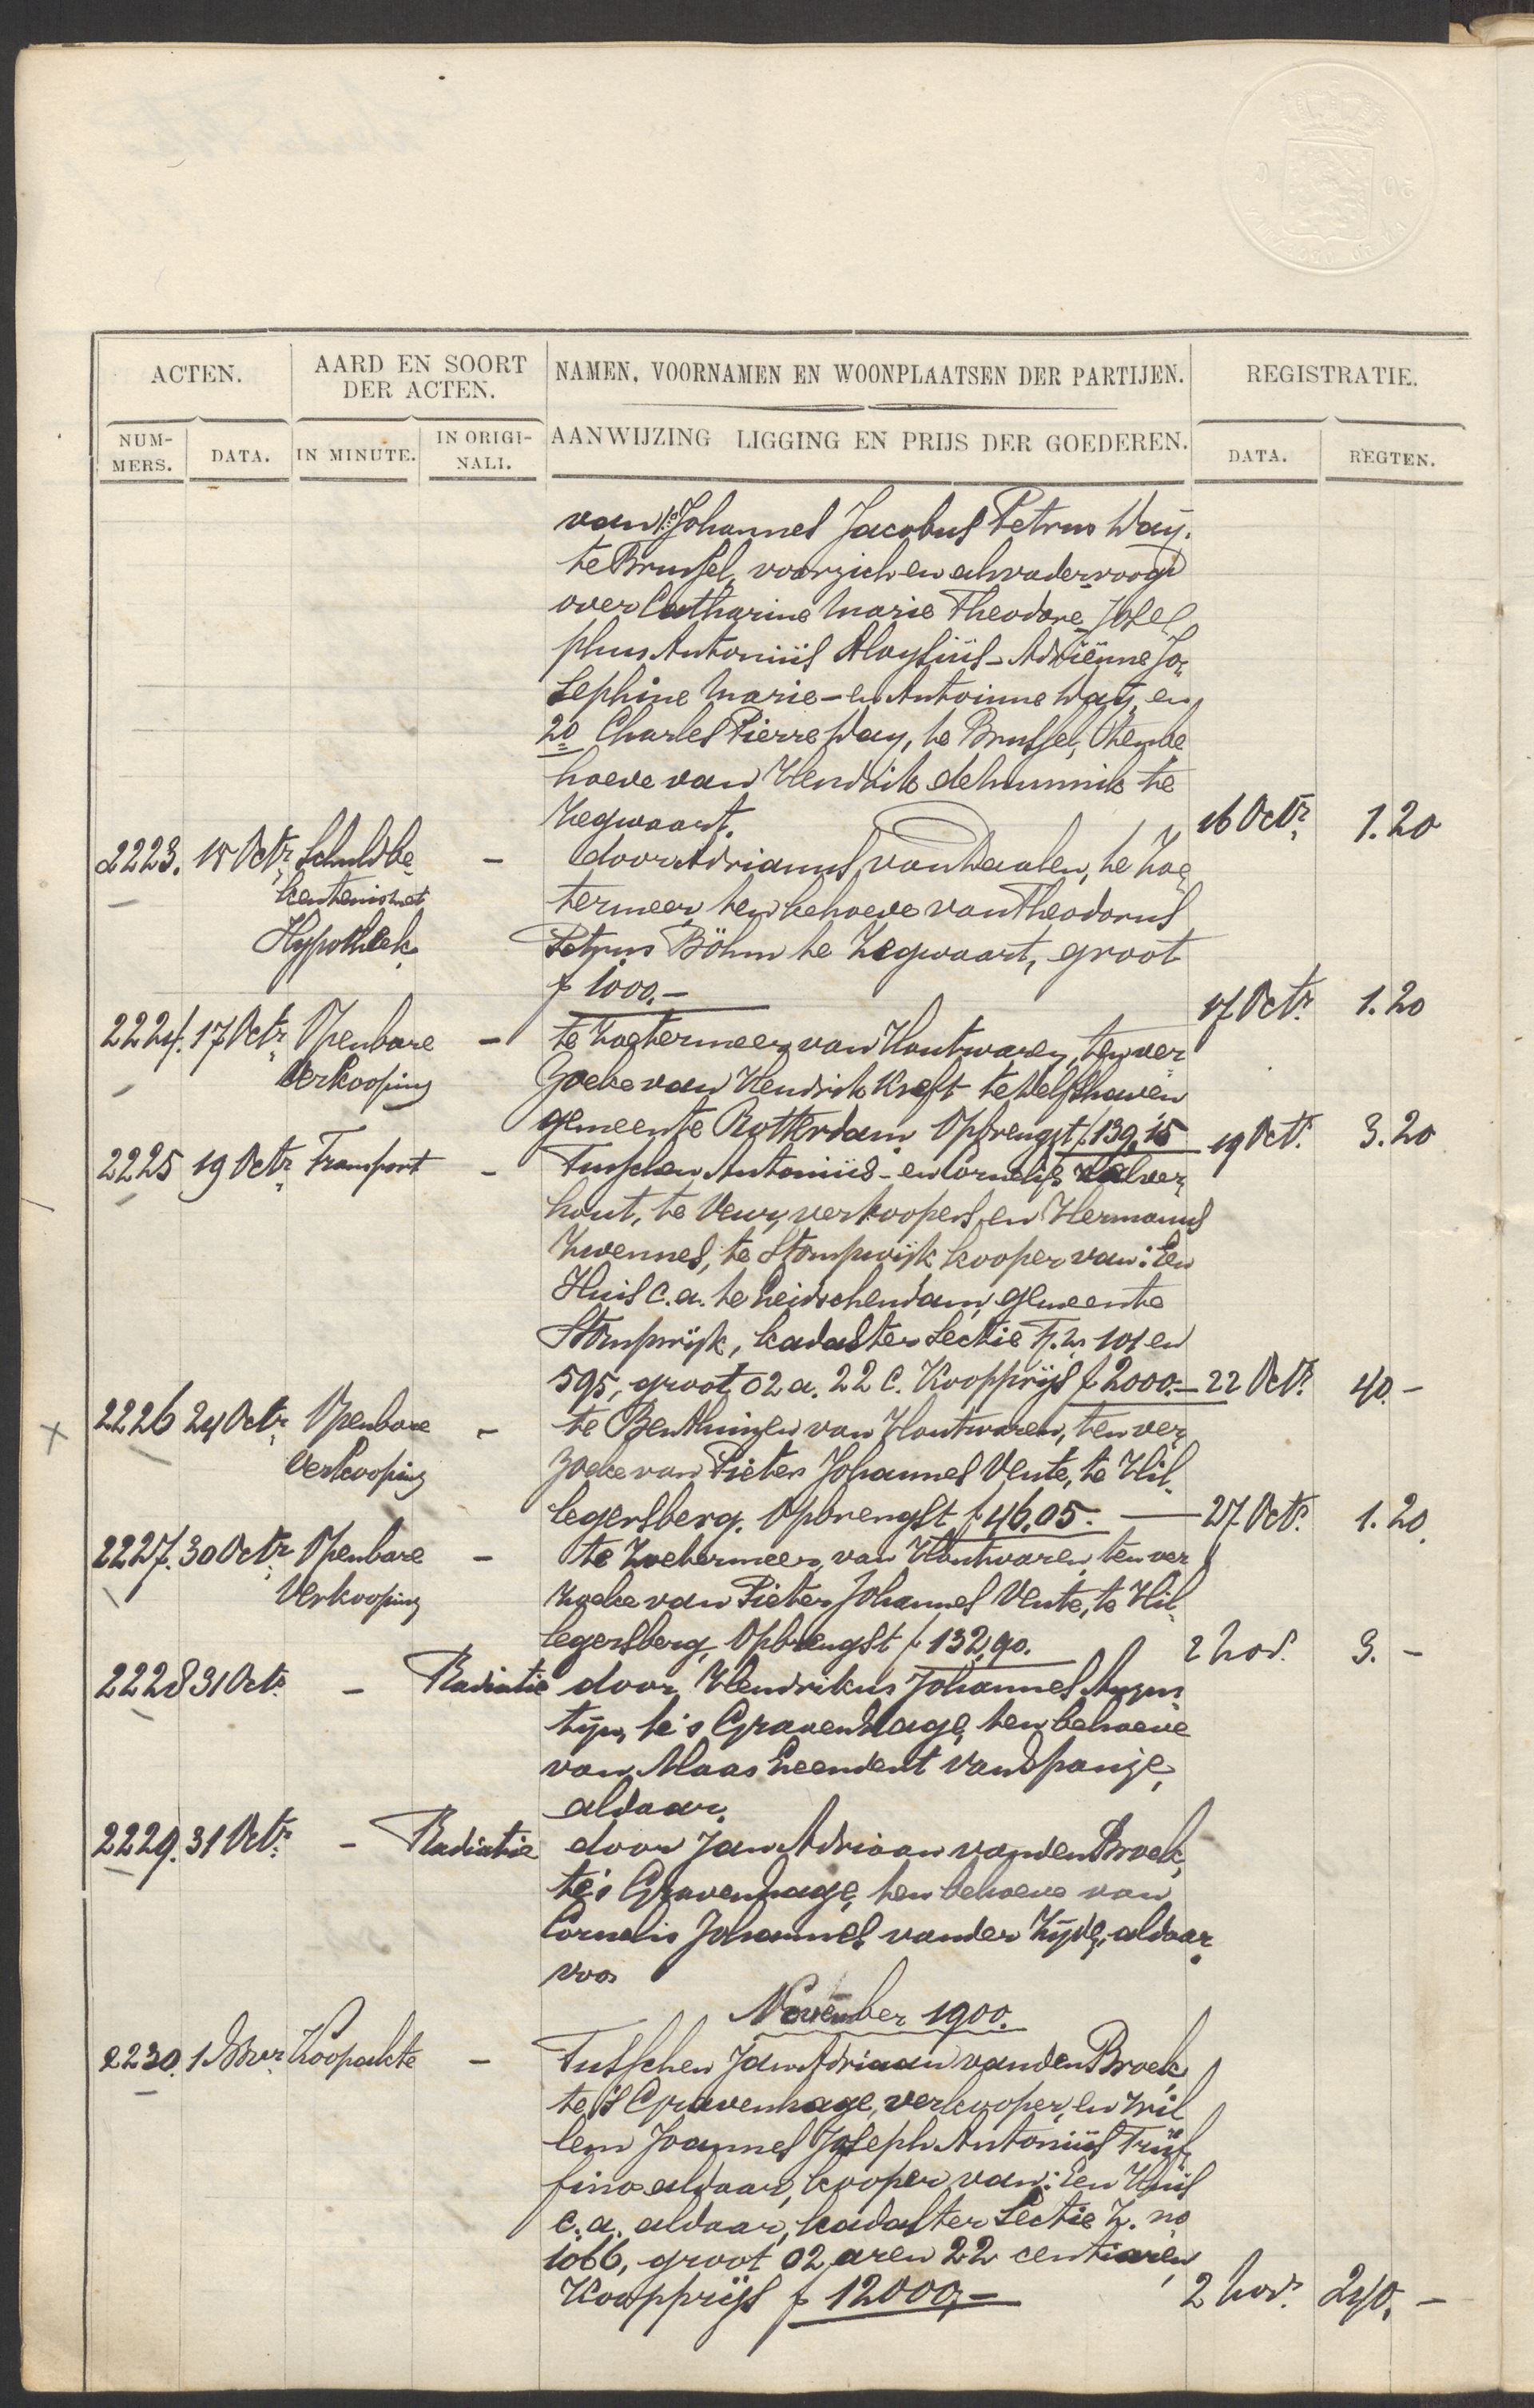 ACTEN.
AARD EN SOORT
DER ACTEN.
NAMEN, VOORNAMEN EN WOONPLAATSEN DER PARTIJEN.
REGISTRATIE.
NUM-
MERS.
DATA.
IN MINUTE.
IN ORIGI-
NALI.
AANWIJZING LIGGING EN PRIJS DER GOEDEREN.
DATA.
REGTEN.
van 1o Johannes Jacobus Petrus Waij.
te Brussel, voor zich en als vader voogd
over Catharine Marie Theodore - Josep
phus Antonius Aloysius - Adriënne Jo-
sephine Marie - en Antoinne Waij, en
2o Charles Pierre Waij, te Brussel, ten be
hoeve van Hendrik de Munnik te
Zegwaart. 16 Octr. 1.20
2223. 15 Octr. Schuldbe- - door Adrianus van Daalen, te Zoe-
kentenis met termeer, ten behoeve van Theodorus
Hypotheek. Petrus Böhm te Zegwaart, groot
f 1000.- 17 Octr. 1.20
2224. 17 Octr. Openbare - te Zoetermeer, van Houtwaren, ten ver
Verkooping zoeke van Hendrik Kreft te Delfshaven
gemeente Rotterdam. Opbrengst f 139,15 19 Oct. 3.20
2225 19 Octr. Transport - Tusschen Antonius - en Cornelis Halver
hout, te Veur, verkoopers, en Hermanus
Zwennes, te Stompwijk kooper van: Een
Huis c.a. te Leidschendam, gemeente
Stompwijk, kadaster Sectie F. n. 101 en
595, groot 02 a. 22 c. Koopprijs f 2000.- 22 Oct. 40.-
2226 24 Octr. Openbare - te Benthuizen van Houtwaren, ten ver
Verkooping zoeke van Pieter Johannes Vente, te Hil-
legersberg. Opbrengst f 46,05.- 27 Oct. 1.20
2227. 30 Octr. Openbare - te Zoetermeer, van Houtwaren, ten ver
Verkooping zoeke van Pieter Johannes Vente, te Hil
legersberg, Opbrengst f 132,90. 2 Nov. 3.-
2228 31 Oct. - Radiatie door Hendrikus Johannes Augus
tijn, te 's Gravenhage, ten behoeve
van Maas Leendert van Spanje,
aldaar.
2229. 31 Octr. - Radiatie door Jan Adriaan van den Broek,
te 's Gravenhage, ten behoeve van
Cornelis Johannes van der Zijde, aldaar.
voor
November 1900.
2230. 1 Novr. Koopakte - Tusschen Jan Adriaan van den Broek
te 's Gravenhage, verkooper, en Wil
lem Joannes Joseph Antonius
aldaar, kooper van: Een Huis
c.a. aldaar, kadaster Sectie Z. no
1066, groot 02 aren 22 centiaren,
Koopprijs f 12000,- 2 Nov. 240.-